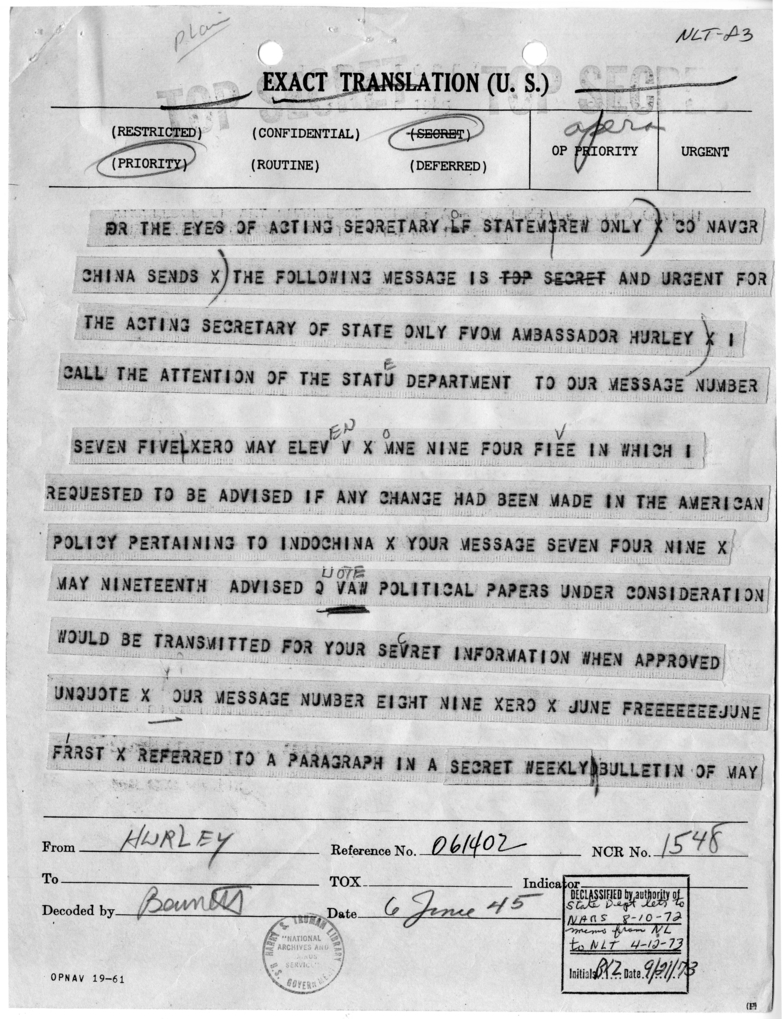 plain
NLT-A3
TOP SECRET TOP SECRET
EXACT TRANSLATION (U. S.)
(RESTRICTED) (CONFIDENTIAL) (SECRET)
(PRIORITY) (ROUTINE) (DEFERRED)
OP PRIORITY URGENT
OR THE EYES OF ACTING SEQRETARY LF STATEMGREW ONLY) X CO NAVGR
CHINA SENDS X) THE FOLLOWING MESSAGE IS TOP SECRET AND URGENT FOR
THE ACTING SECRETARY OF STATE ONLY FVOM AMBASSADOR HURLEY) X I
E
CALL THE ATTENTION OF THE STATU DEPARTMENT TO OUR MESSAGE NUMBER
EN O V
SEVEN FIVELXERO MAY ELEV V X MNE NINE FOUR FIEE IN WHICH I
REQUESTED TO BE ADVISED IF ANY CHANGE HAD BEEN MADE IN THE AMERICAN
POLICY PERTAINING TO INDOCHINA X YOUR MESSAGE SEVEN FOUR NINE X
UOTE
MAY NINETEENTH ADVISED Q VAW POLITICAL PAPERS UNDER CONSIDERATION
C
WOULD BE TRANSMITTED FOR YOUR SEVRET INFORMATION WHEN APPROVED
UNQUOTE X OUR MESSAGE NUMBER EIGHT NINE XERO X JUNE FREEEEEEEJUNE
I
FRRST X REFERRED TO A PARAGRAPH IN A SECRET WEEKLY BULLETIN OF MAY
From HURLEY Reference No. 061402 NCR No. 1548
To TOX Indicator
Decoded by Date 6 June 45
DECLASSIFIED by authority of
State Dept lets to
NARS 8-10-72
memo from NL
to NLT 4-12-73
Initials Date 9/21/73
HARRY S. TRUMAN LIBRARY
"NATIONAL
ARCHIVES AND
SERVICE"
U.S. GOVERNMENT
OPNAV 19-61